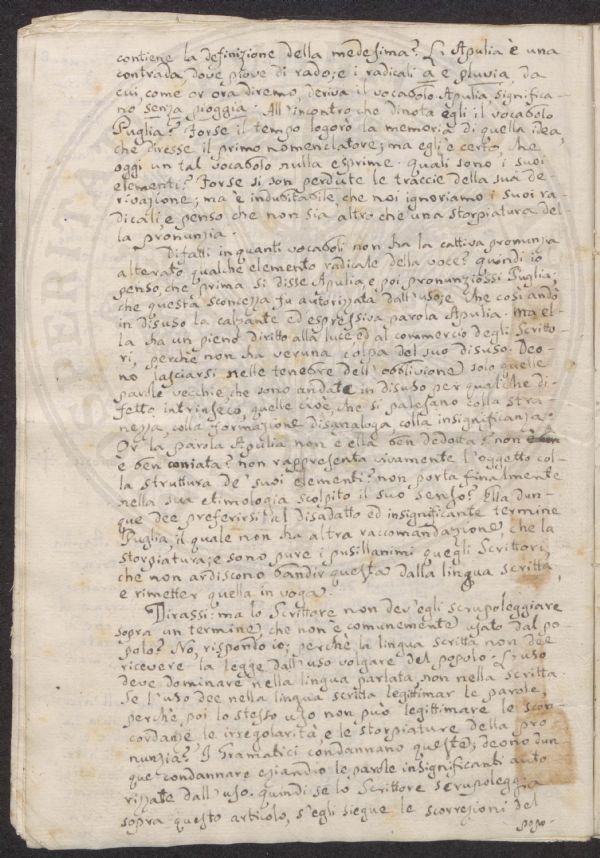 contiene la definizione della medesima? L'Apulia è una
contrada dove piove di rado; e i radicali a e pluvia, da
cui, come or ora diremo, deriva il vocabolo Apulia, significa-
no senza pioggia. All'incontro che dinota egli il vocabolo
Puglia? Forse il tempo logorò la memoria di quella idea,
che diresse il primo nomenclatore; ma egli è certo, che
oggi un tal vocabolo nulla esprime. Quali sono i suoi
elementi? Forse si son perdute le traccie della sua de-
rivazione; ma è indubitabile, che noi ignoriamo i suoi ra-
dicali, e penso che non sia altro che una storpiatura del-
la pronunzia.
Difatti in quanti vocaboli non ha la cattiva pronunzia
alterato qualche elemento radicale della voce? Quindi io
penso, che prima si disse Apulia, e poi pronunziossi Puglia;
che questa sconcezza fu autorizzata dall'uso; e che così andò
in disuso la calzante ed espressiva parola Apulia. Ma el-
la ha un pieno diritto alla luce ed al commercio degli Scritto-
ri, perchè non ha veruna colpa del suo disuso. Deo-
no lasciarsi nelle tenebre dell'obblivione solo quelle
parole vecchie, che sono andate in disuso per qualche di-
fetto intrinseco, quelle cioè, che si palesano colla stra-
nezza, colla formazione disanaloga, colla insignificanza.
Or la parola Apulia non è ella ben dedotta? non
è ben coniata? non rappresenta vivamente l'oggetto col-
la struttura de' suoi elementi? non porta finalmente
nella sua etimologia scolpito il suo senso? Ella dun-
que dee preferirsi al disadatto ed insignificante termine
Puglia, il quale non ha altra raccomandazione, che la
storpiatura; e sono pure i pusillanimi quegli Scrittori,
che non ardiscono bandir questa dalla lingua scritta,
e rimetter quella in voga.
Dirassi: ma lo Scrittore non dev'egli scrupoleggiare
sopra un termine, che non è comunemente usato dal po-
polo? No, rispondo io; perchè la lingua scritta non dee
ricevere la legge dall'uso volgare del popolo. L'uso
deve dominare nella lingua parlata, non nella scritta.
Se l'uso dee nella lingua scritta legittimar le parole,
perchè poi lo stesso uso non può legittimare le scon-
cordanze, le irregolarità, e le storpiature della pro-
nunzia? I Gramatici condannano queste; deono dun-
que condannare eziandio le parole insignificanti auto-
rizzate dall'uso. Quindi se lo Scrittore scrupoleggia
sopra questo articolo, s'egli siegue le scorrezioni del
popo-